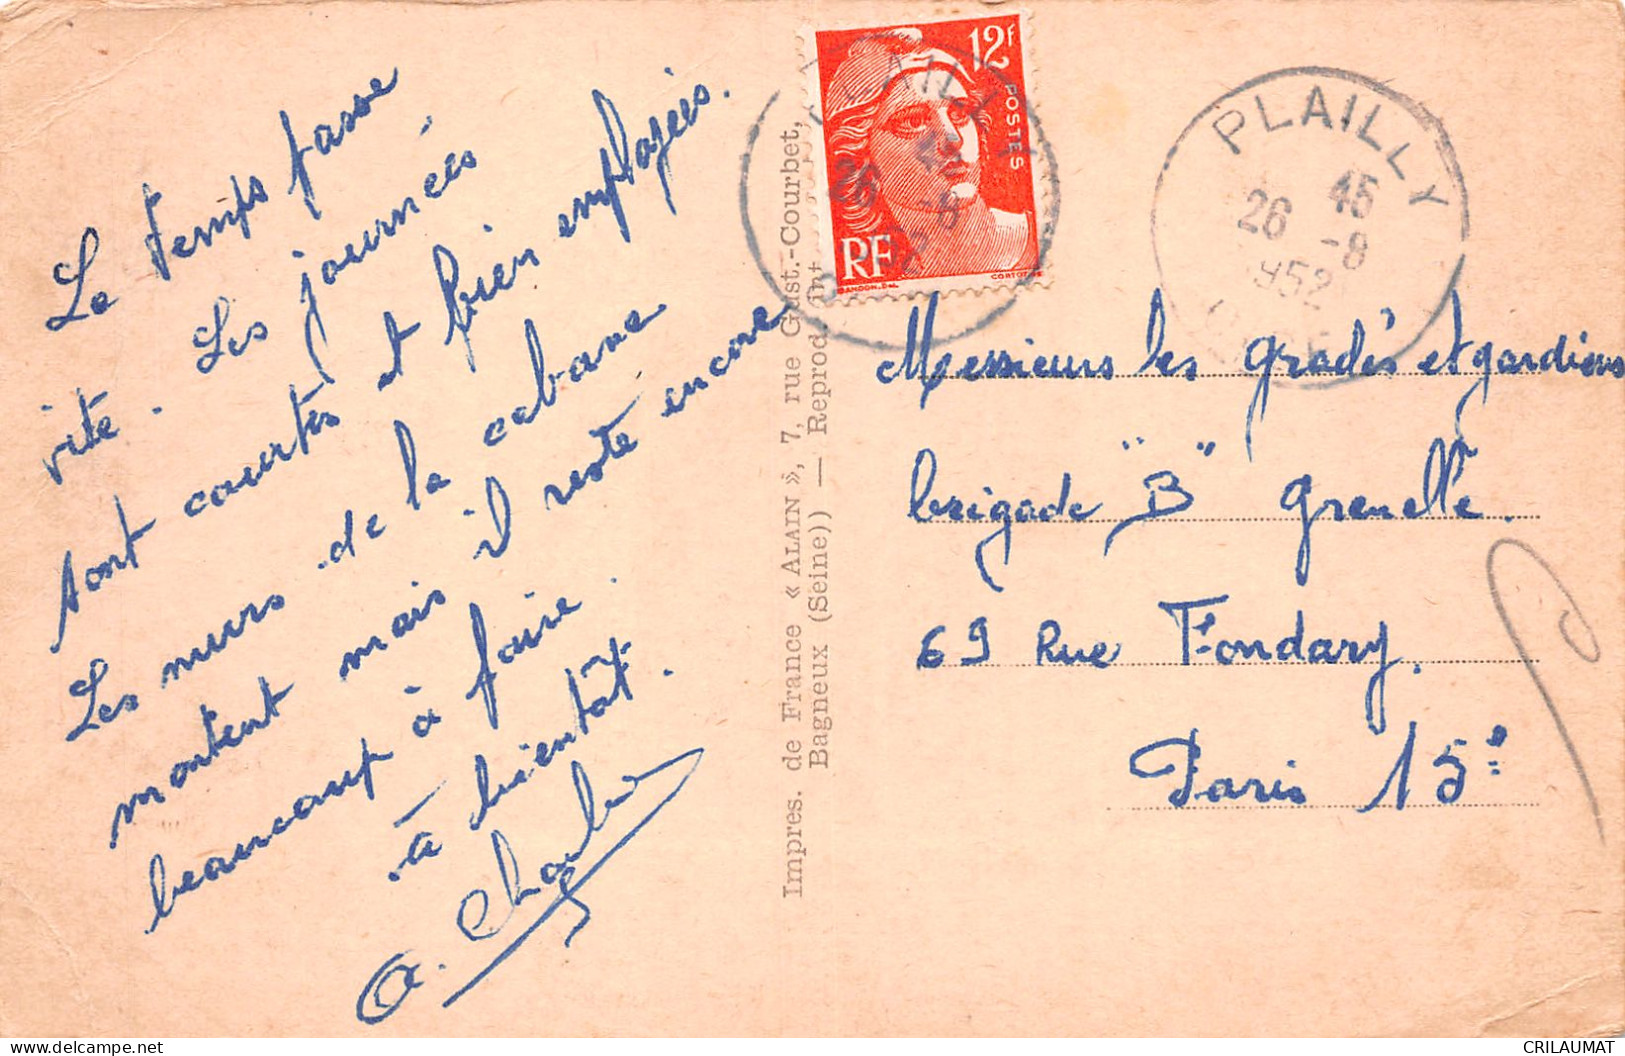 Le temps passe
vite. Les journées
sont courtes et bien employées.
Les murs de la cabane
montent mais il reste encore
beaucoup à faire.
à bientôt.
Impres. de France « ALAIN », 7, rue Gust.-Courbet,
Bagneux (Seine)) — Reprod. int
12f
POSTES
RF
PLAILLY
45
26 -8
1952
PLAILLY
45
26 -8
1952
OISE
Messieurs les gradés et gardiens
brigade "B" Grenelle.
69 Rue Fondary.
Paris 15e
CRILAUMAT